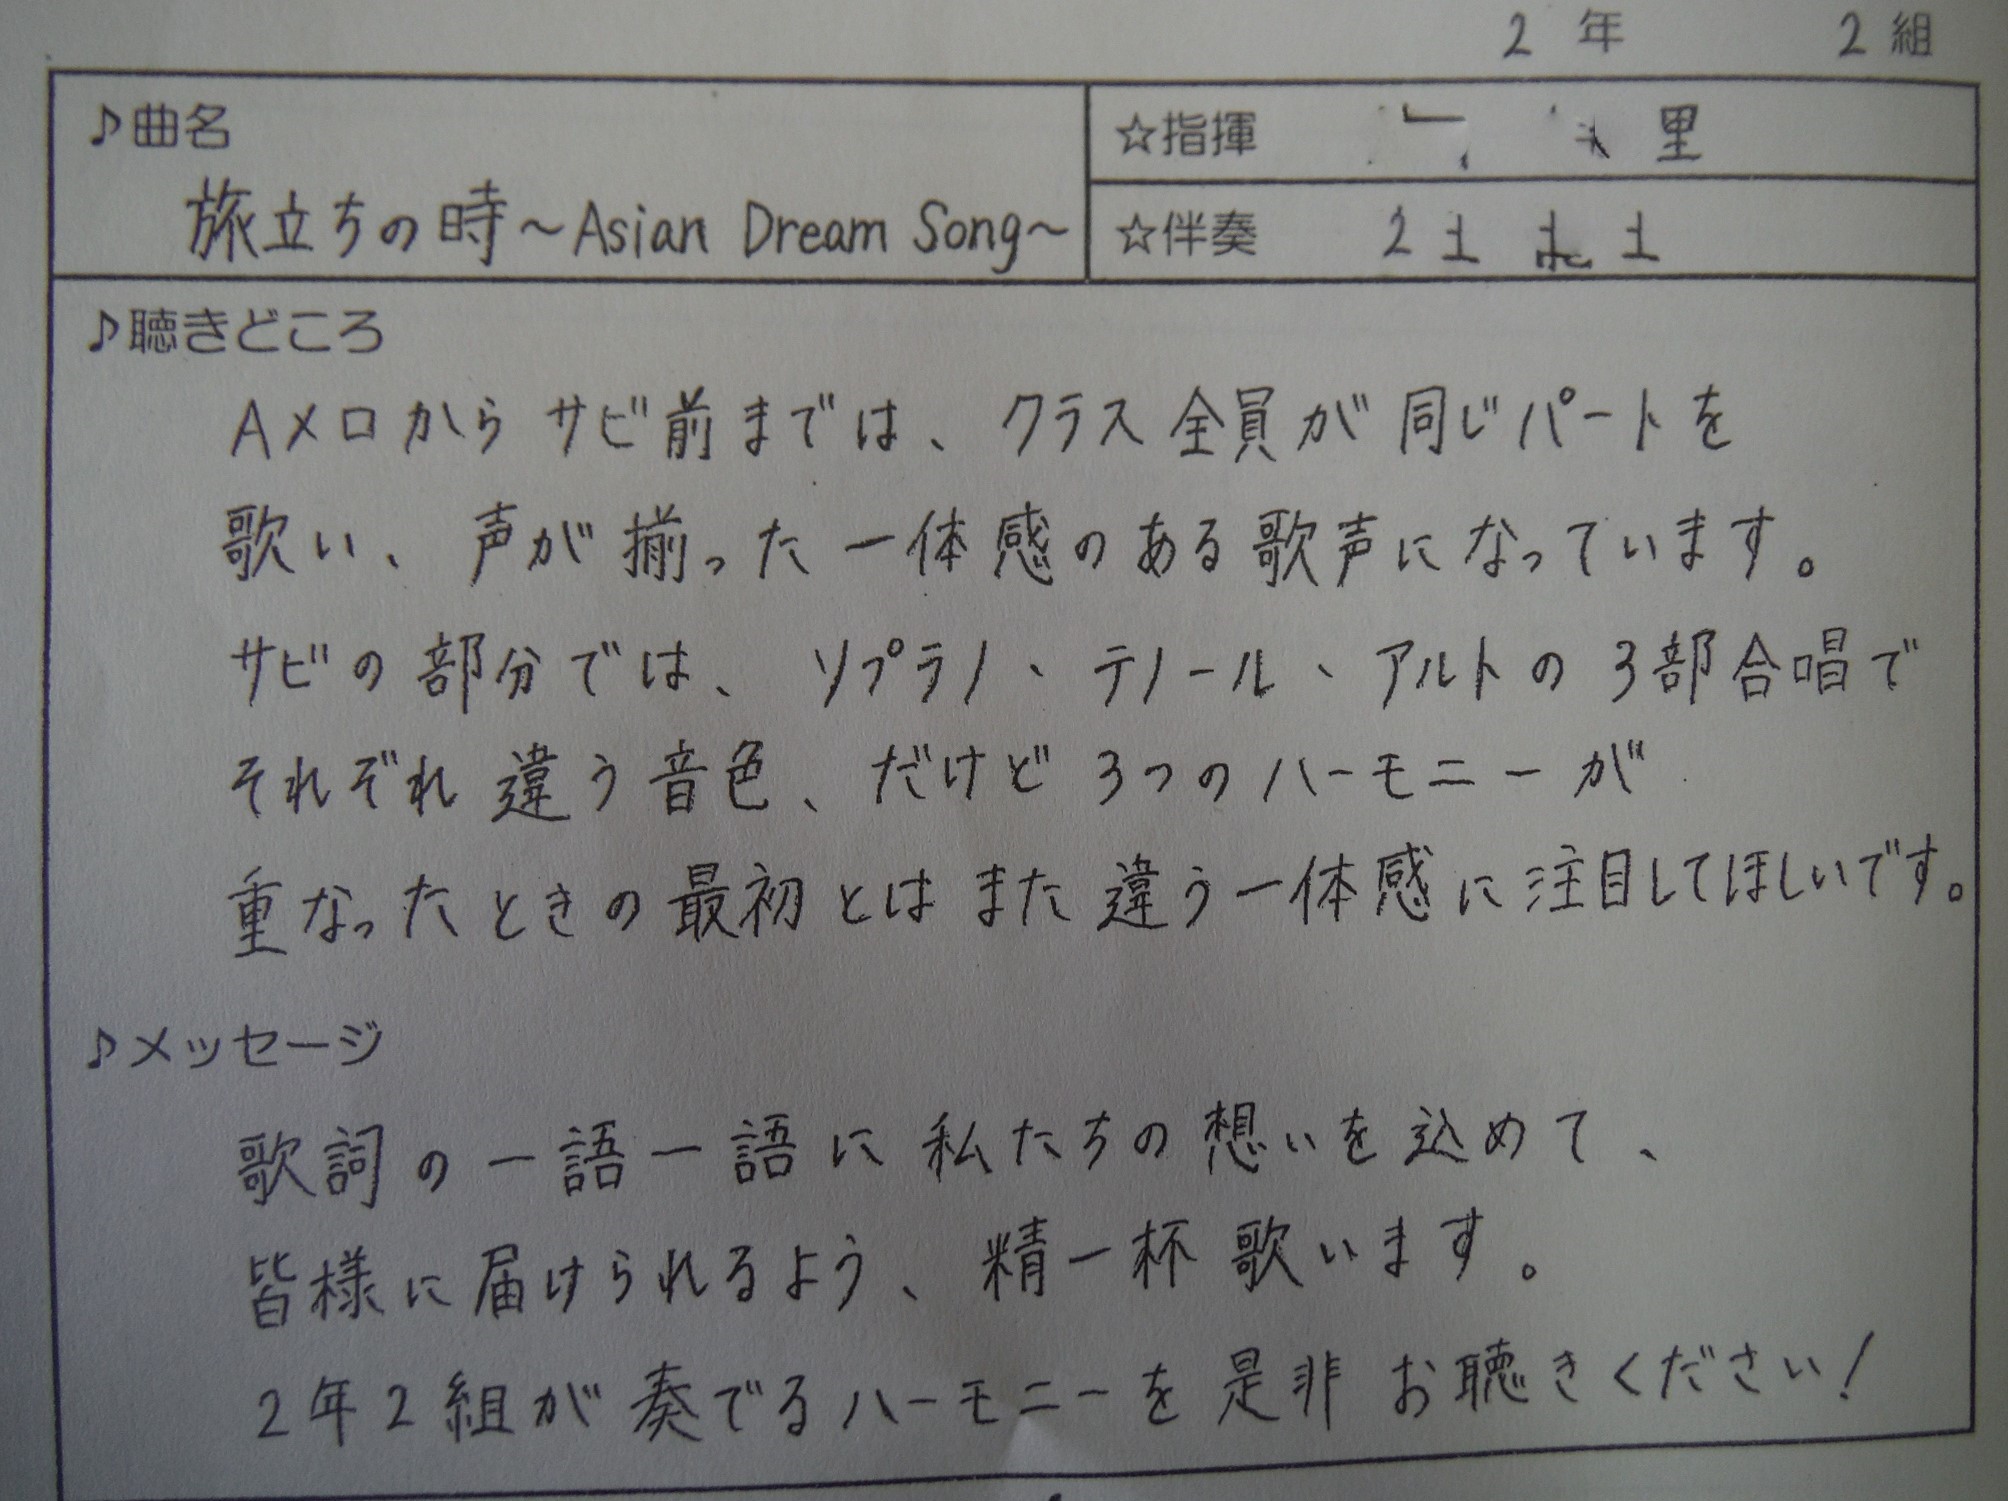 2年 2組
♪曲名
旅立ちの時～Asian Dream Song～
☆指揮 里
☆伴奏
♪聴きどころ
Aメロからサビ前までは、クラス全員が同じパートを
歌い、声が揃った一体感のある歌声になっています。
サビの部分では、ソプラノ、テノール、アルトの3部合唱で
それぞれ違う音色、だけど3つのハーモニーが
重なったときの最初とはまた違う一体感に注目してほしいです。
♪メッセージ
歌詞の一語一語に私たちの想いを込めて、
皆様に届けられるよう、精一杯歌います。
2年2組が奏でるハーモニーを是非お聴きください!